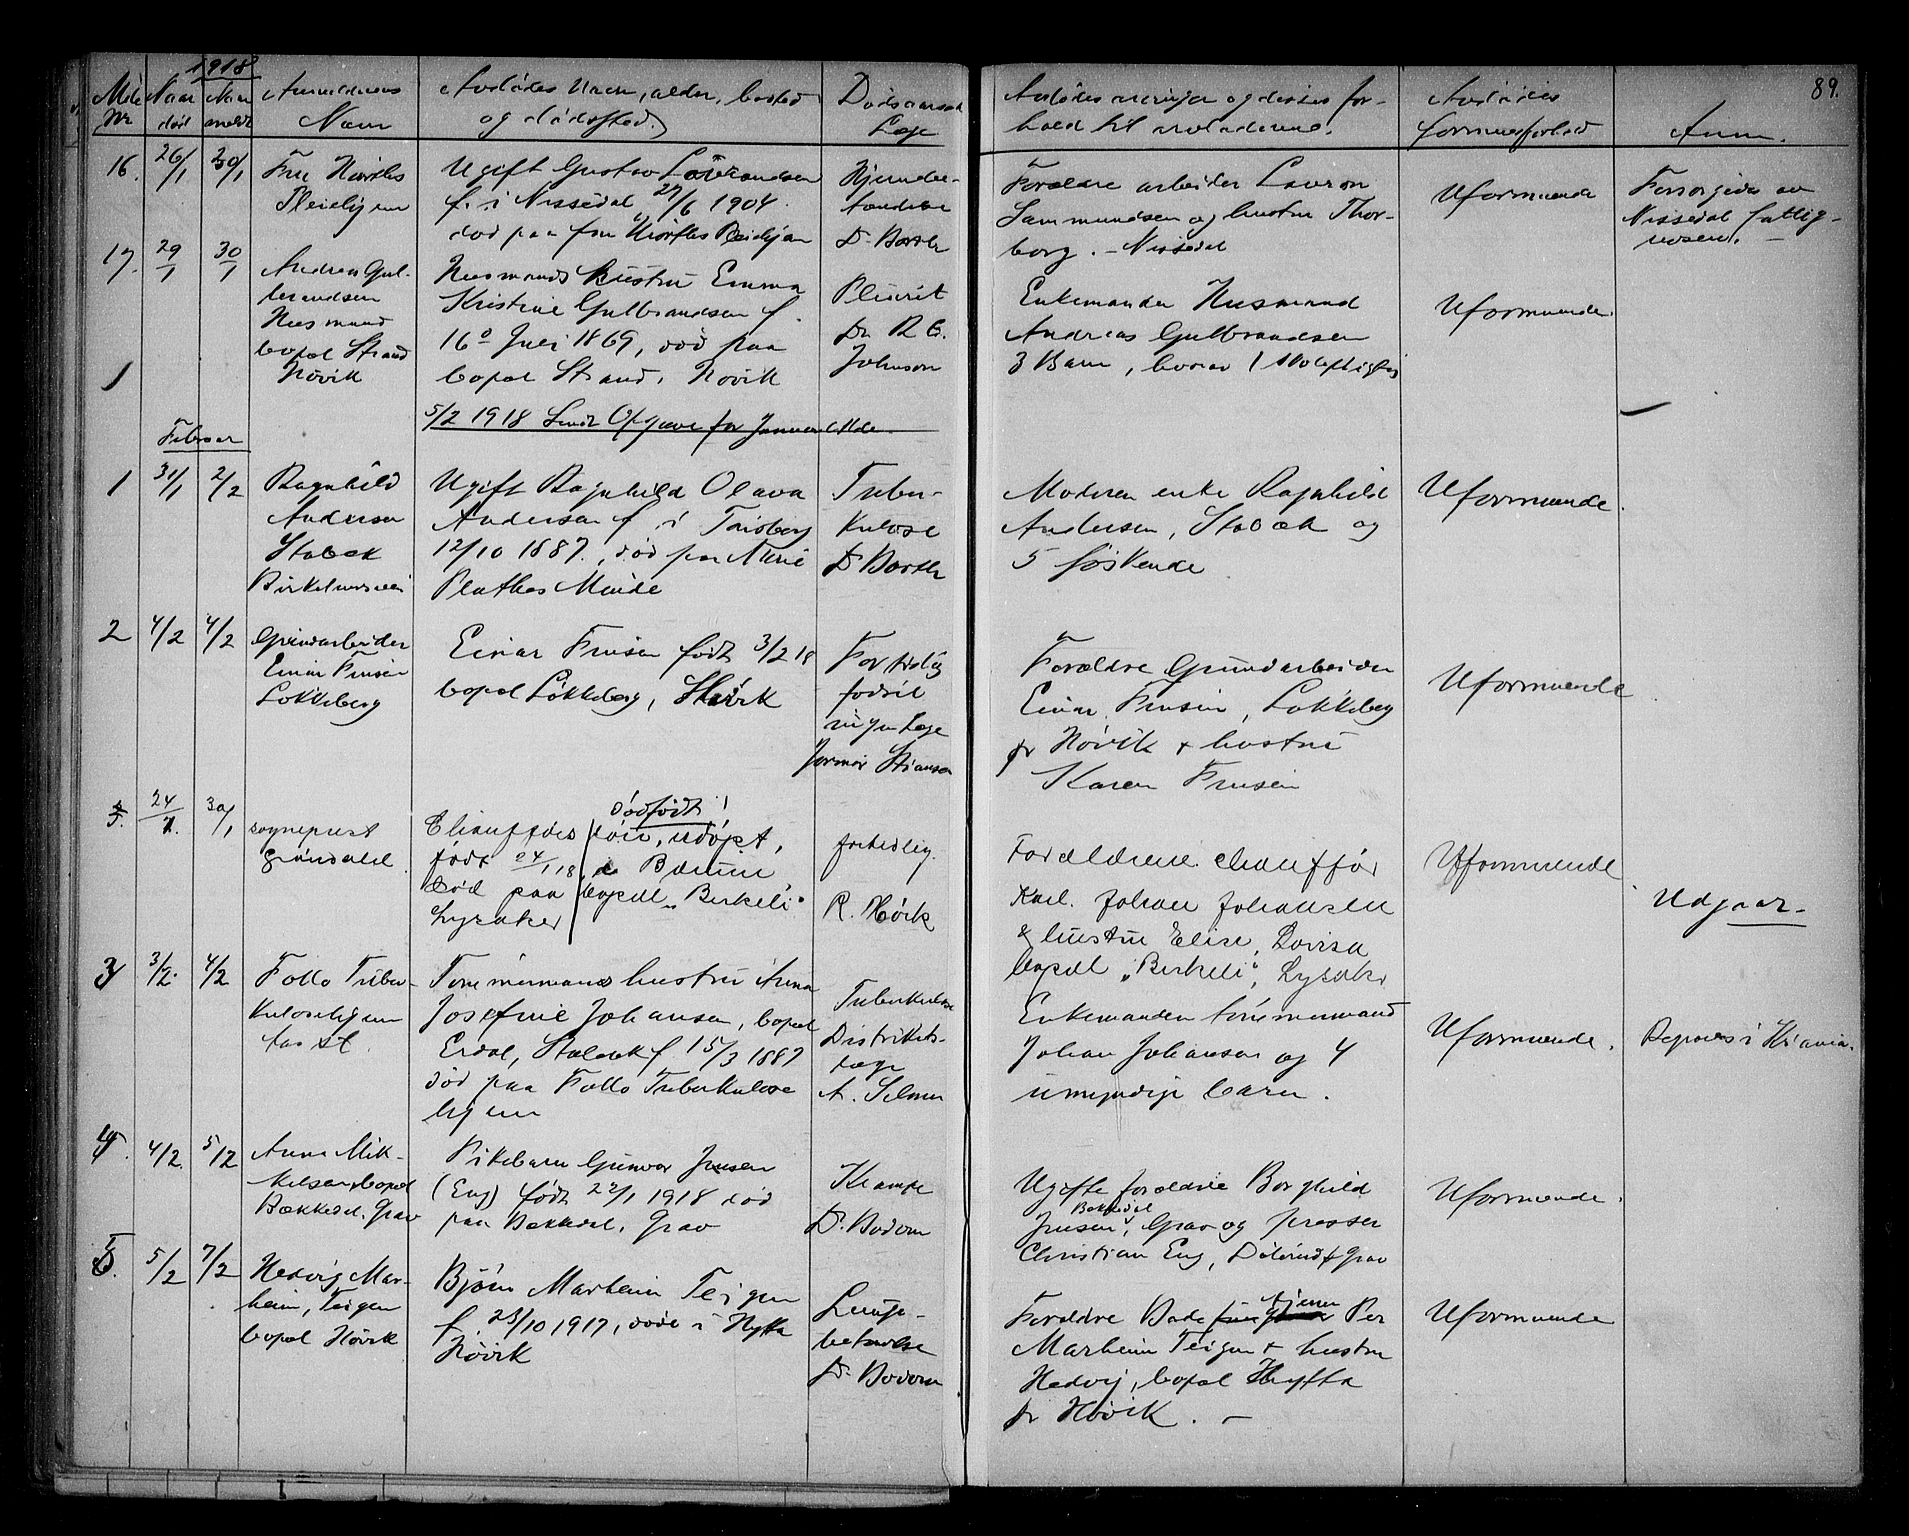 89.
1918
Meld
Nr
Naar
død
Naar
meldt
Anmelderens
Navn
Avdødes Navn, alder, bosted
og dødssted.
Dødsaarsak
Læge
Avdødes arvinger og disses for-
hold til avdøde.
Avdødes
formuesforhold
Anm.
16.
26/1
30/1
Fru
Pleiehjem
Ugift Gustav
f. i Nissedal 27/6 1904.
død paa fru
Dr. Barth
Forældre arbeider
og hustru Thor-
borg. - Nissedal
Uformuende
Forsørgedes av
Nissedal fattig-
væsen. -
17.
29/1
30/1
Andreas Gul-
brandsen
Husmand
bopæl Strand
Høvik
Husmands hustru Emma
Kristine Gulbrandsen f.
16 Juni 1869, død paa
bopæl Strand, Høvik
Pleurit
Dr R. G.
Johnson
Enkemanden Husmand
Andreas Gulbrandsen
3 Barn, hvorav 1
Uformuende.
5/2 1918 Sendt Opgave for Januar Md.
Februar
1
31/1
2/2
Ragnhild
Andersen
Stabæk
Ugift Ragnhild Olava
Andersen f. i Tønsberg
12/10 1887, død paa
Plathes Minde
Tuber-
kulose
Dr Barth
Moderen enke Ragnhild
Andersen, Stabæk og
5 søskende
Uformuende.
2
4/2
4/2
Grindarbeider
Einar Frusen
Løkkeberg
Einar Frusen født 3/2 18
bopæl Løkkeberg, Høvik
For tidlig
fødsel
ingen Læge
Jormor
Forældre Grundarbeider
Einar Frusen, Løkkeberg
pr Høvik + hustru
Karen Frusen
Uformuende
3.
24/1.
30/1
sogneprest
Grøndahl
dødfødt!
Chaufførs søn, udøpt,
født 24/1 18, i Bærum
død paa bopæl "Birkeli"
Lysaker
fortidlig.
R. Høik
Forældrene chauffør
Karl Johan Johansen
& hustru Elise, Lovisa
bopæl "Birkeli", Lysaker
Uformuende
Udgaar-
3
3/2.
4/2
Follo Tuber-
kulosehjem
Tømmermands hustru Anna
Josefine Johansen, bopæl
Erdal, Stabæk f. 15/3 1887
død paa Follo Tuberkulose
hjem
Tuberkulose
Distrikts-
læge
A. Selmer
Enkemanden tømmermand
Johan Johansen og 4
umyndige barn.
Uformuende.
i Kr.ania.
4.
4/2.
5/2
Anna Mik-
kelsen bopæl
Bækkedal, Grav
Pikebarn Gunvor Jensen
(Eng) født 22/1 1918 død
paa Bækkedal, Grav
Krampe
Dr. Bodom
Ugifte forældre Borghild
Bækkedal
Jensen, Grav og presser
Christian Eng, Grav
Uformuende.
5.
5/2
7/2
Hedvig Mar-
heim, Teigen
bopæl Høvik
Bjørn Marheim Teigen
f. 23/10 1917, døde i Hytta
Høvik
Lunge-
betændelse
Dr. Bodom
Forældre Bade Per
Marheim Teigen + hustru
Hedvig, bopæl Hytta
pr Høvik. -
Uformuende